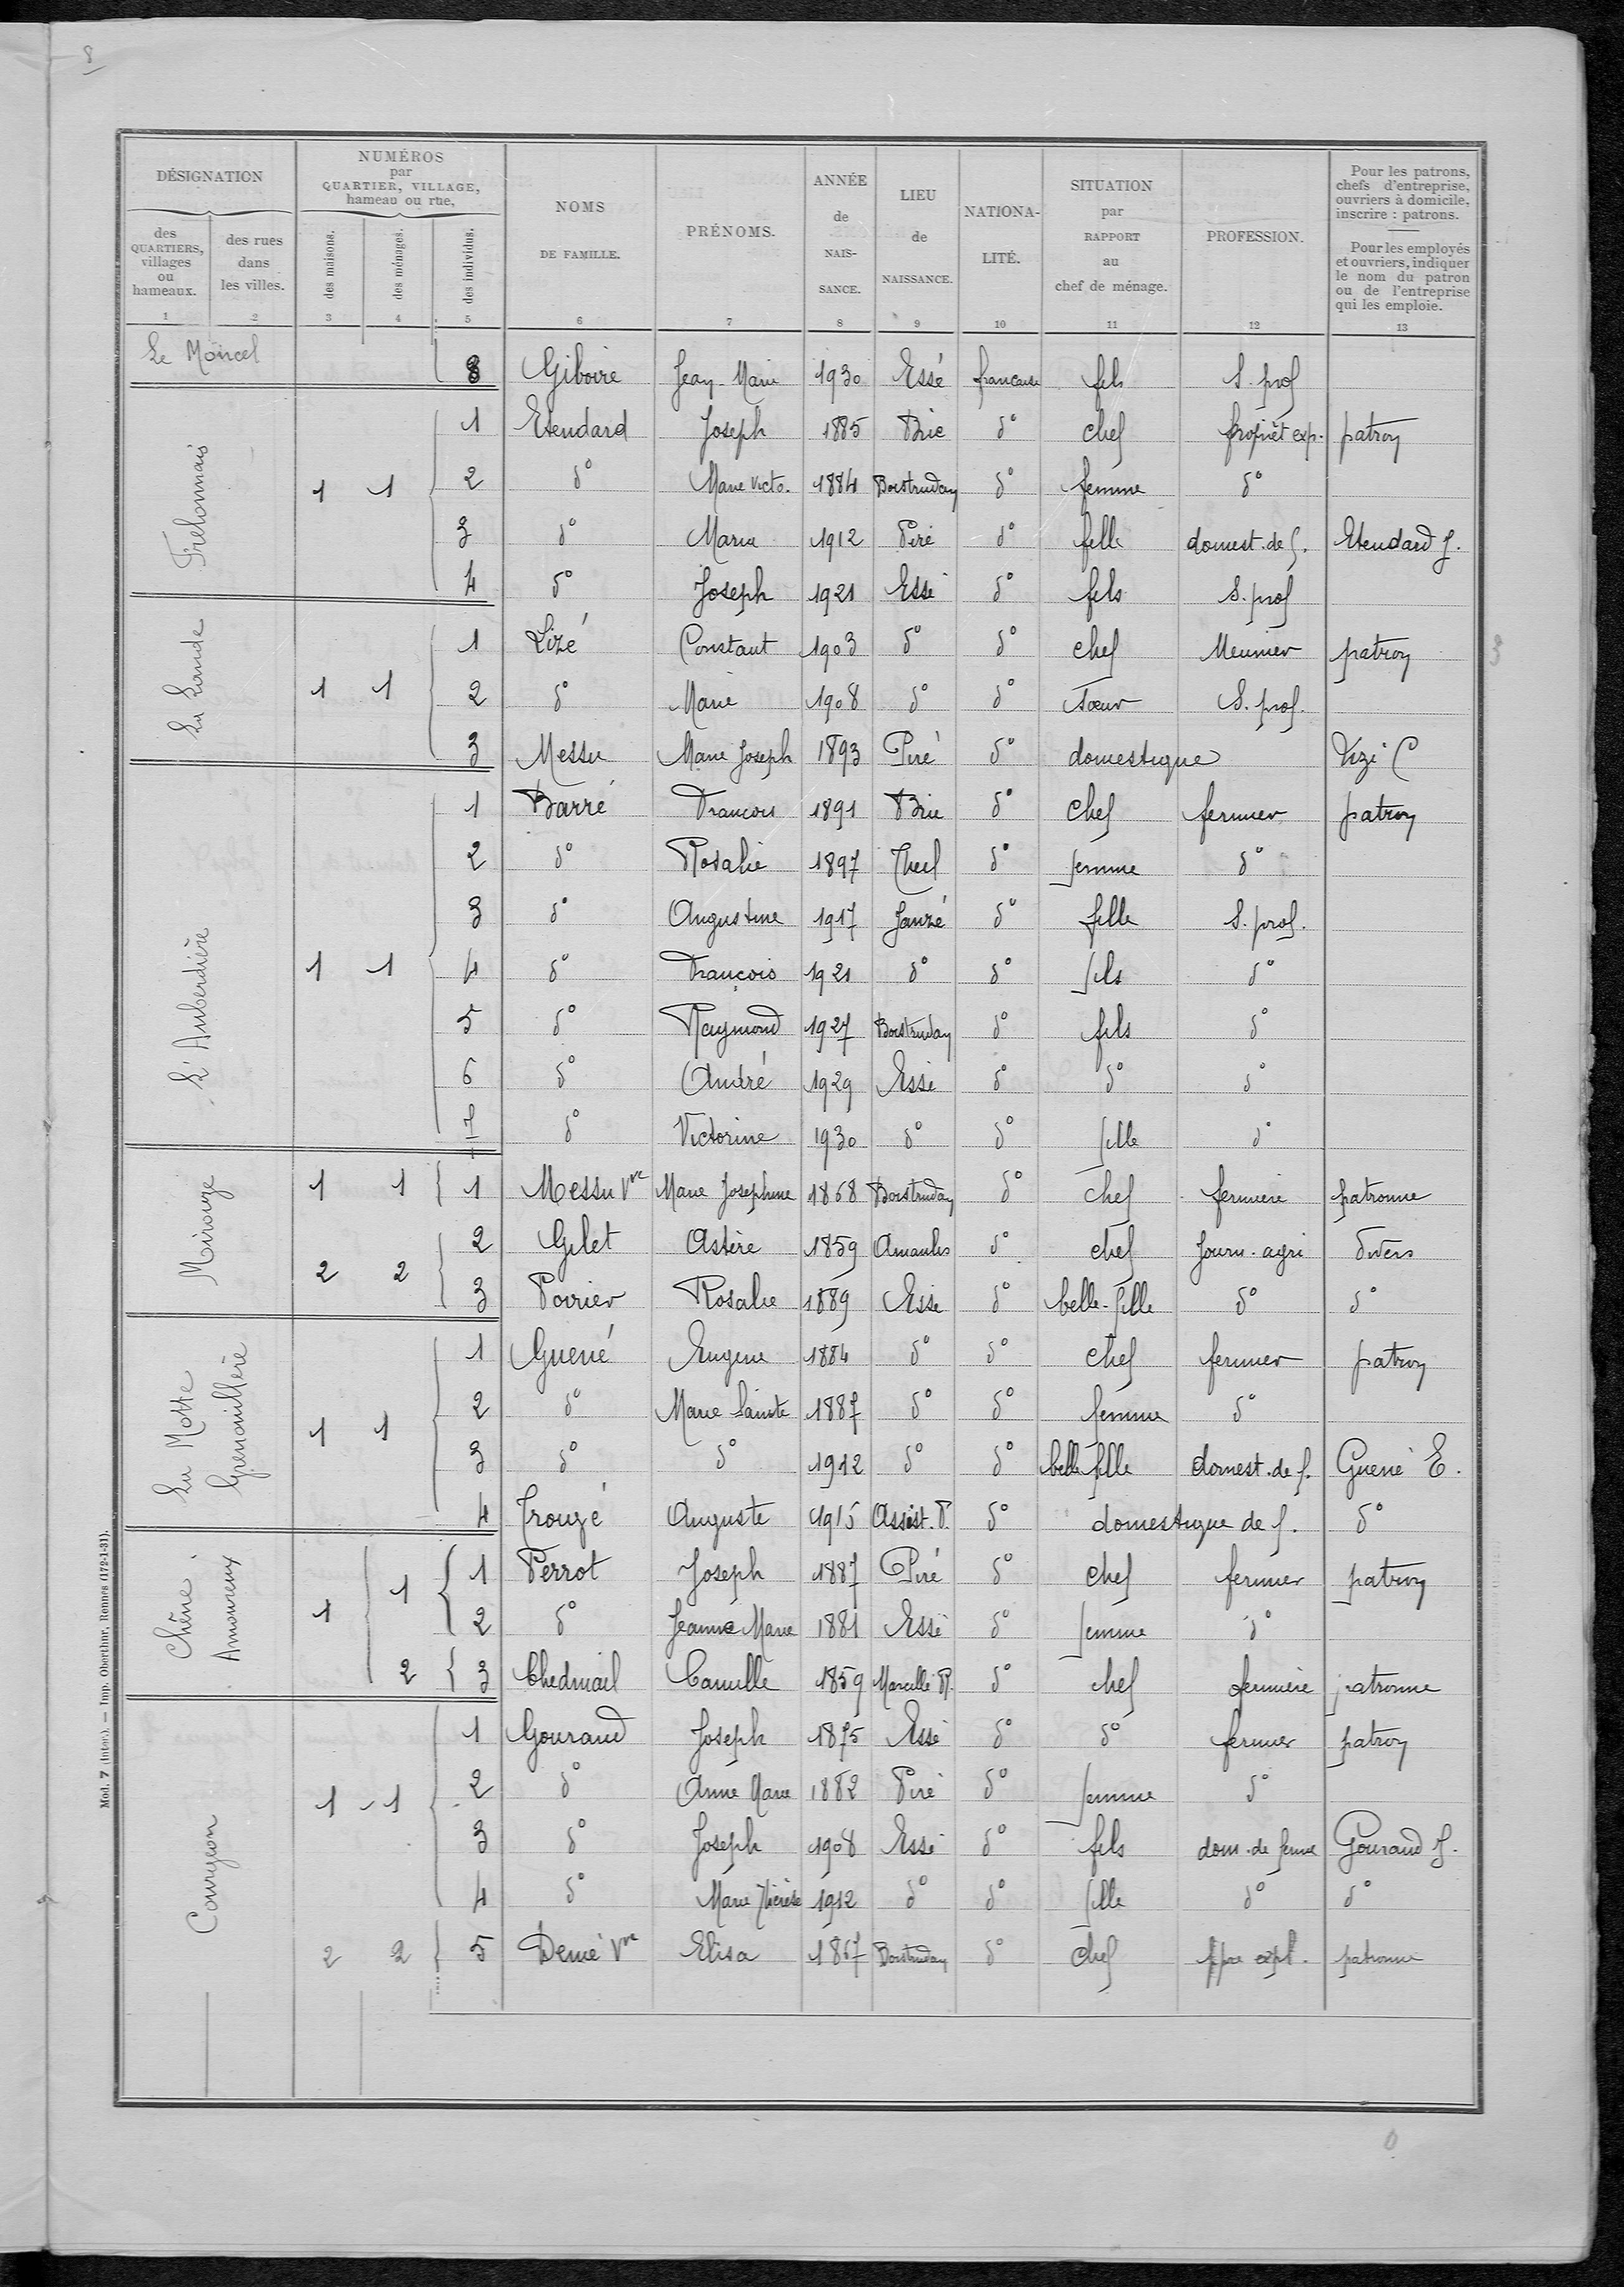 8
DÉSIGNATION
des QUARTIERS, villages ou hameaux.
des rues dans les villes.
NUMÉROS par QUARTIER, VILLAGE, hameau ou rue,
des maisons.
des ménages.
des individus.
NOMS DE FAMILLE.
PRÉNOMS.
ANNÉE de NAIS- SANCE.
LIEU de NAISSANCE.
NATIONA- LITÉ.
SITUATION par RAPPORT au chef de ménage.
PROFESSION.
Pour les patrons, chefs d'entreprise, ouvriers à domicile, inscrire : patrons.
Pour les employés et ouvriers, indiquer le nom du patron ou de l'entreprise qui les emploie.
1 2 3 4 5 6 7 8 9 10 11 12 13
Le Moncel 8 Giboire Jean-Marie 1930 Essé française fils S. prof
Frelonnais
1 1
1 Etendard Joseph 1885 Brie d° chef propriét exp. patron
2 d° Marie Victo. 1884 Boistrudan d° femme d°
3 d° Maria 1912 Piré d° fille domest. de f. Etendard J.
4 d° Joseph 1921 Essé d° fils S. prof
La Lande
1 1
1 Lizé Constant 1903 d° d° chef Meunier patron
2 d° Marie 1908 d° d° soeur S. prof.
3 Messu Marie Joseph 1893 Piré d° domestique Lizé C
L'Auberdière
1 1
1 Barré François 1891 Brie d° chef fermier patron
2 d° Rosalie 1897 Theil d° femme d°
3 d° Augustine 1917 Janzé d° fille S. prof.
4 d° François 1921 d° d° fils d°
5 d° Raymond 1927 Boistrudan d° fils d°
6 d° André 1929 Essé d° d° d°
7 d° Victorine 1930 d° d° fille d°
Mirouze
1 1 1 Messu Vve Marie Josephine 1868 Boistrudan d° chef fermière patronne
2 2
2 Gilet Astère 1859 Amanlis d° chef Journ. agri divers
3 Poirier Rosalie 1889 Essé d° belle-fille d° d°
La Motte Grenouillère
1 1
1 Guené Eugene 1884 d° d° chef fermier patron
2 d° Marie Sainte 1887 d° d° femme d°
3 d° d° 1912 d° d° belle fille domest. de f. Guené E.
4 Trouzé Auguste 1915 Assist. P. d° domestique de f. d°
Chêne Amoureux
1 1
1 Perrot Joseph 1887 Piré d° chef fermier patron
2 d° Jeanne Marie 1881 Essé d° femme d°
2 3 Chedmail Camille 1859 Marcillé R. d° chef fermière patronne
Courgeon
1 1
1 Gouraud Joseph 1875 Essé d° d° fermier patron
2 d° Anne Marie 1882 Piré d° femme d°
3 d° Joseph 1908 Essé d° fils dom. de ferme Gouraud J.
4 d° Marie Thérèse 1912 d° d° fille d° d°
2 2 5 Demé Vve Elisa 1867 Boistrudan d° chef ppre expl. patronne
3
0
Mod. 7 (Inter). — Imp. Oberthur, Rennes (172-1-31).